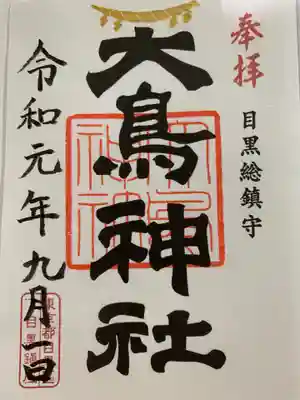 奉拝
目黒総鎮守
大鳥神社
令和元年九月一日